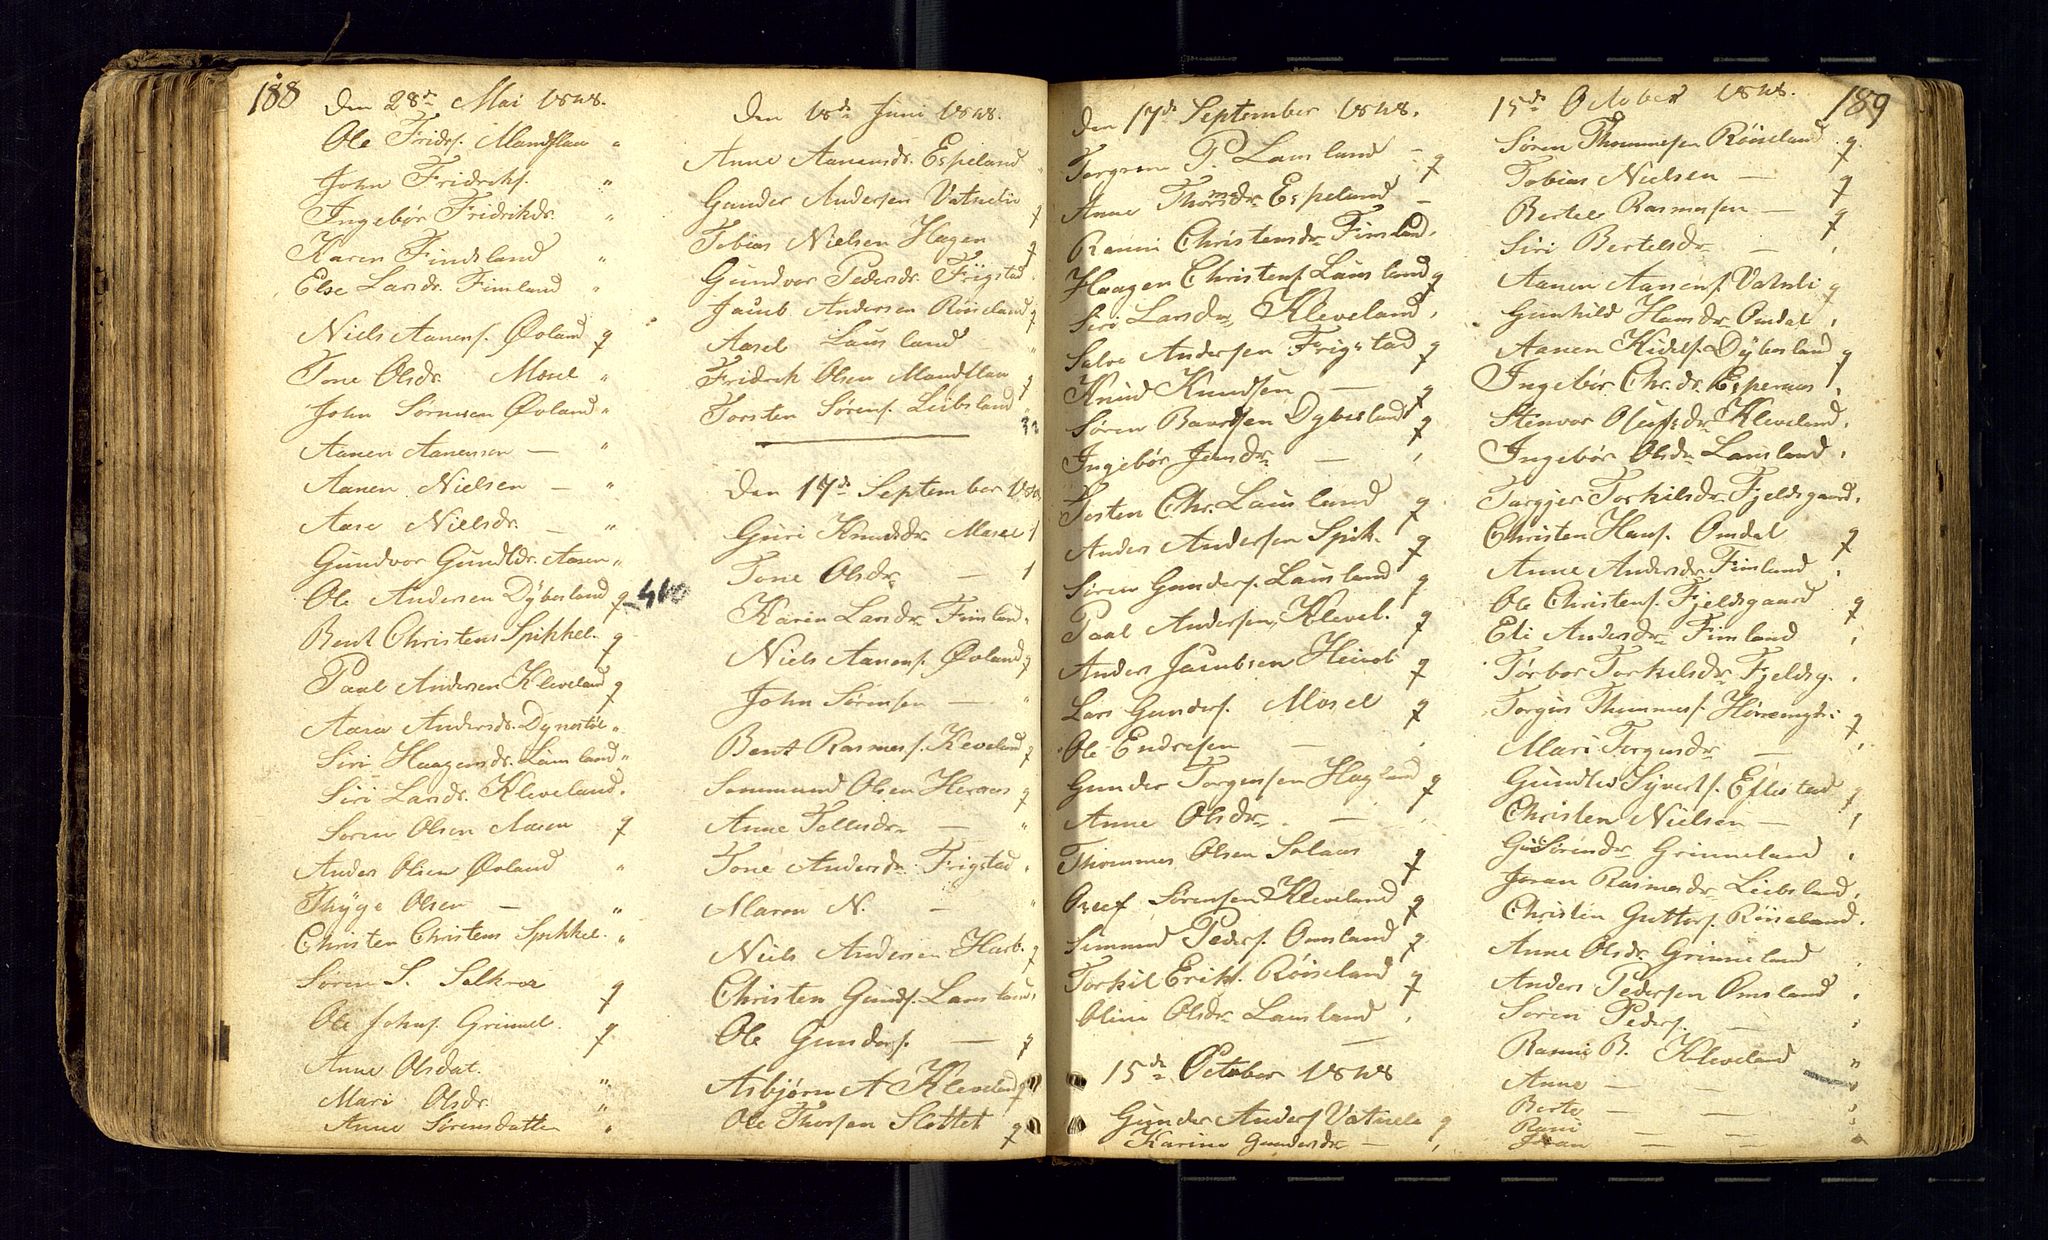 188
Den 28de Mai 1848.
Ole Fridrs. Mandflaa "
John Fridriks. "
Ingebør Fridrikdr. "
Karen Findsland "
Else Larsdr. Fimland "
Niels Aanens. Øvland g
Tone Olsdr. Mosel "
John Sørensen Øvland "
Aanen Aanensen — "
Aanen Nielsen — "
Aase Nielsdr. — "
Gundvor Gundldr. Aasen "
Ole Andersen Dybesland g
Bent Christens Spikkel. g
Paal Andersen Kleveland g
Aasa Andersdr. Dynestøl "
Siri Haagensdr. Lausland "
Siri Larsdr. Kleveland "
Søren Olsen Aasen g
Anders Olsen Øvland "
Thyge Olsen — "
Christen Christens Spikkel. "
Søren S. g
Ole Johns. Grimel. g
Anne Olsdat.
Mari Olsdr. "
Anne Sørensdatter "
Den 18de Juni 1848.
Anne Aanensdr. Espeland "
Gunder Andersen Vatnelie g
Tobias Nielsen Hagen g
Gundvor Pedersdr. Frigstad
Jacub Andersen Røiseland g
Aasel Lausland "
Fridrik Olsen Mandflaa g
Torsten Sørens. Leibsland "
32
Den 17de September 1848
Guri Knudsdr. Mosel 1
Tone Olsdr. — 1
Karen Larsdr. Fimland.
Niels Aanens. Øvland g
John Sørensen — "
Bent Rasmus. Kleveland g
Sommund Olsen Heraas g
Anne Tellefsdr. — "
Tone Andersdr. Frigstad.
Maren N. — "
Niels Andersen Harb. g
Christen Gunds. Lausland
Ole Gunders. — g
Asbjørn A Kleveland g
Ole Thorsen Slottet g
Den 17de September 1848.
Torgrim P. Lausland — g
Anne Thomsdr. Espeland —
Ranni Christensdr. Fimland.
Haagen Christens. Lausland g
Siri Larsdr. Kleveland.
Salve Andersen Frigstad g
Knud Knudsen — g
Søren Baardsen Dybesland g
Ingebør Jensdr. —
Tosten Chr. Lausland g
Anders Andersen Spik. g
Søren Gunders. Lausland g
Paal Andersen, Klevel. g
Anders Jacubsen g
Lars Gunders. Mosel g
Ole Endresen —
Gunder Torgensen Hagland g
Anne Olsdr. —
Thommes Olsen Solaas g
Osuf Sørensen Kleveland g
Simund Peders. Omland g
Torkil Eriks. Røiseland g
Oline Olsdr. Lausland
15de October 1848
Gunder Anders Vatnele g
Karine Gundersdr. —
189
15de October 1848.
Søren Thommesen Røiseland g
Tobias Nielsen — g
Bertel Rasmusen — g
Siri Bertelsdr. —
Aanen Aanens. Vatnli g
Gunhild Hansdr. Omdal
Aanen Kidels. Dybesland g
Ingebør Chr.dr. Esperaas
Stenvor Olufsdr. Kleveland.
Ingebør Olsdr. Lausland
Targjer Torkilsdr. Fjeldsgaard.
Christen Hans. Omdal g
Anne Andersdr. Fimland
Ole Christens. Fjeldsgaard g
Eli Andersdr. Fimland
Torbor Torkilsdr. Fjeldsg.
Torgius Thommes. g
Mari Torgiusdr. —
Gundled Syverts. Eftestad g
Christen Nielsen —
Sørensdr. Grinneland
Joran Rasmusdr. Leibsland
Christen Guttors. Røiseland.
Anne Olsdr. Grinneland
Anders Pedersen Omsland
Søren Peders. —
Rasmus B. Kleveland "
Anne — —
Berte — —
Rani — —
Joran — —